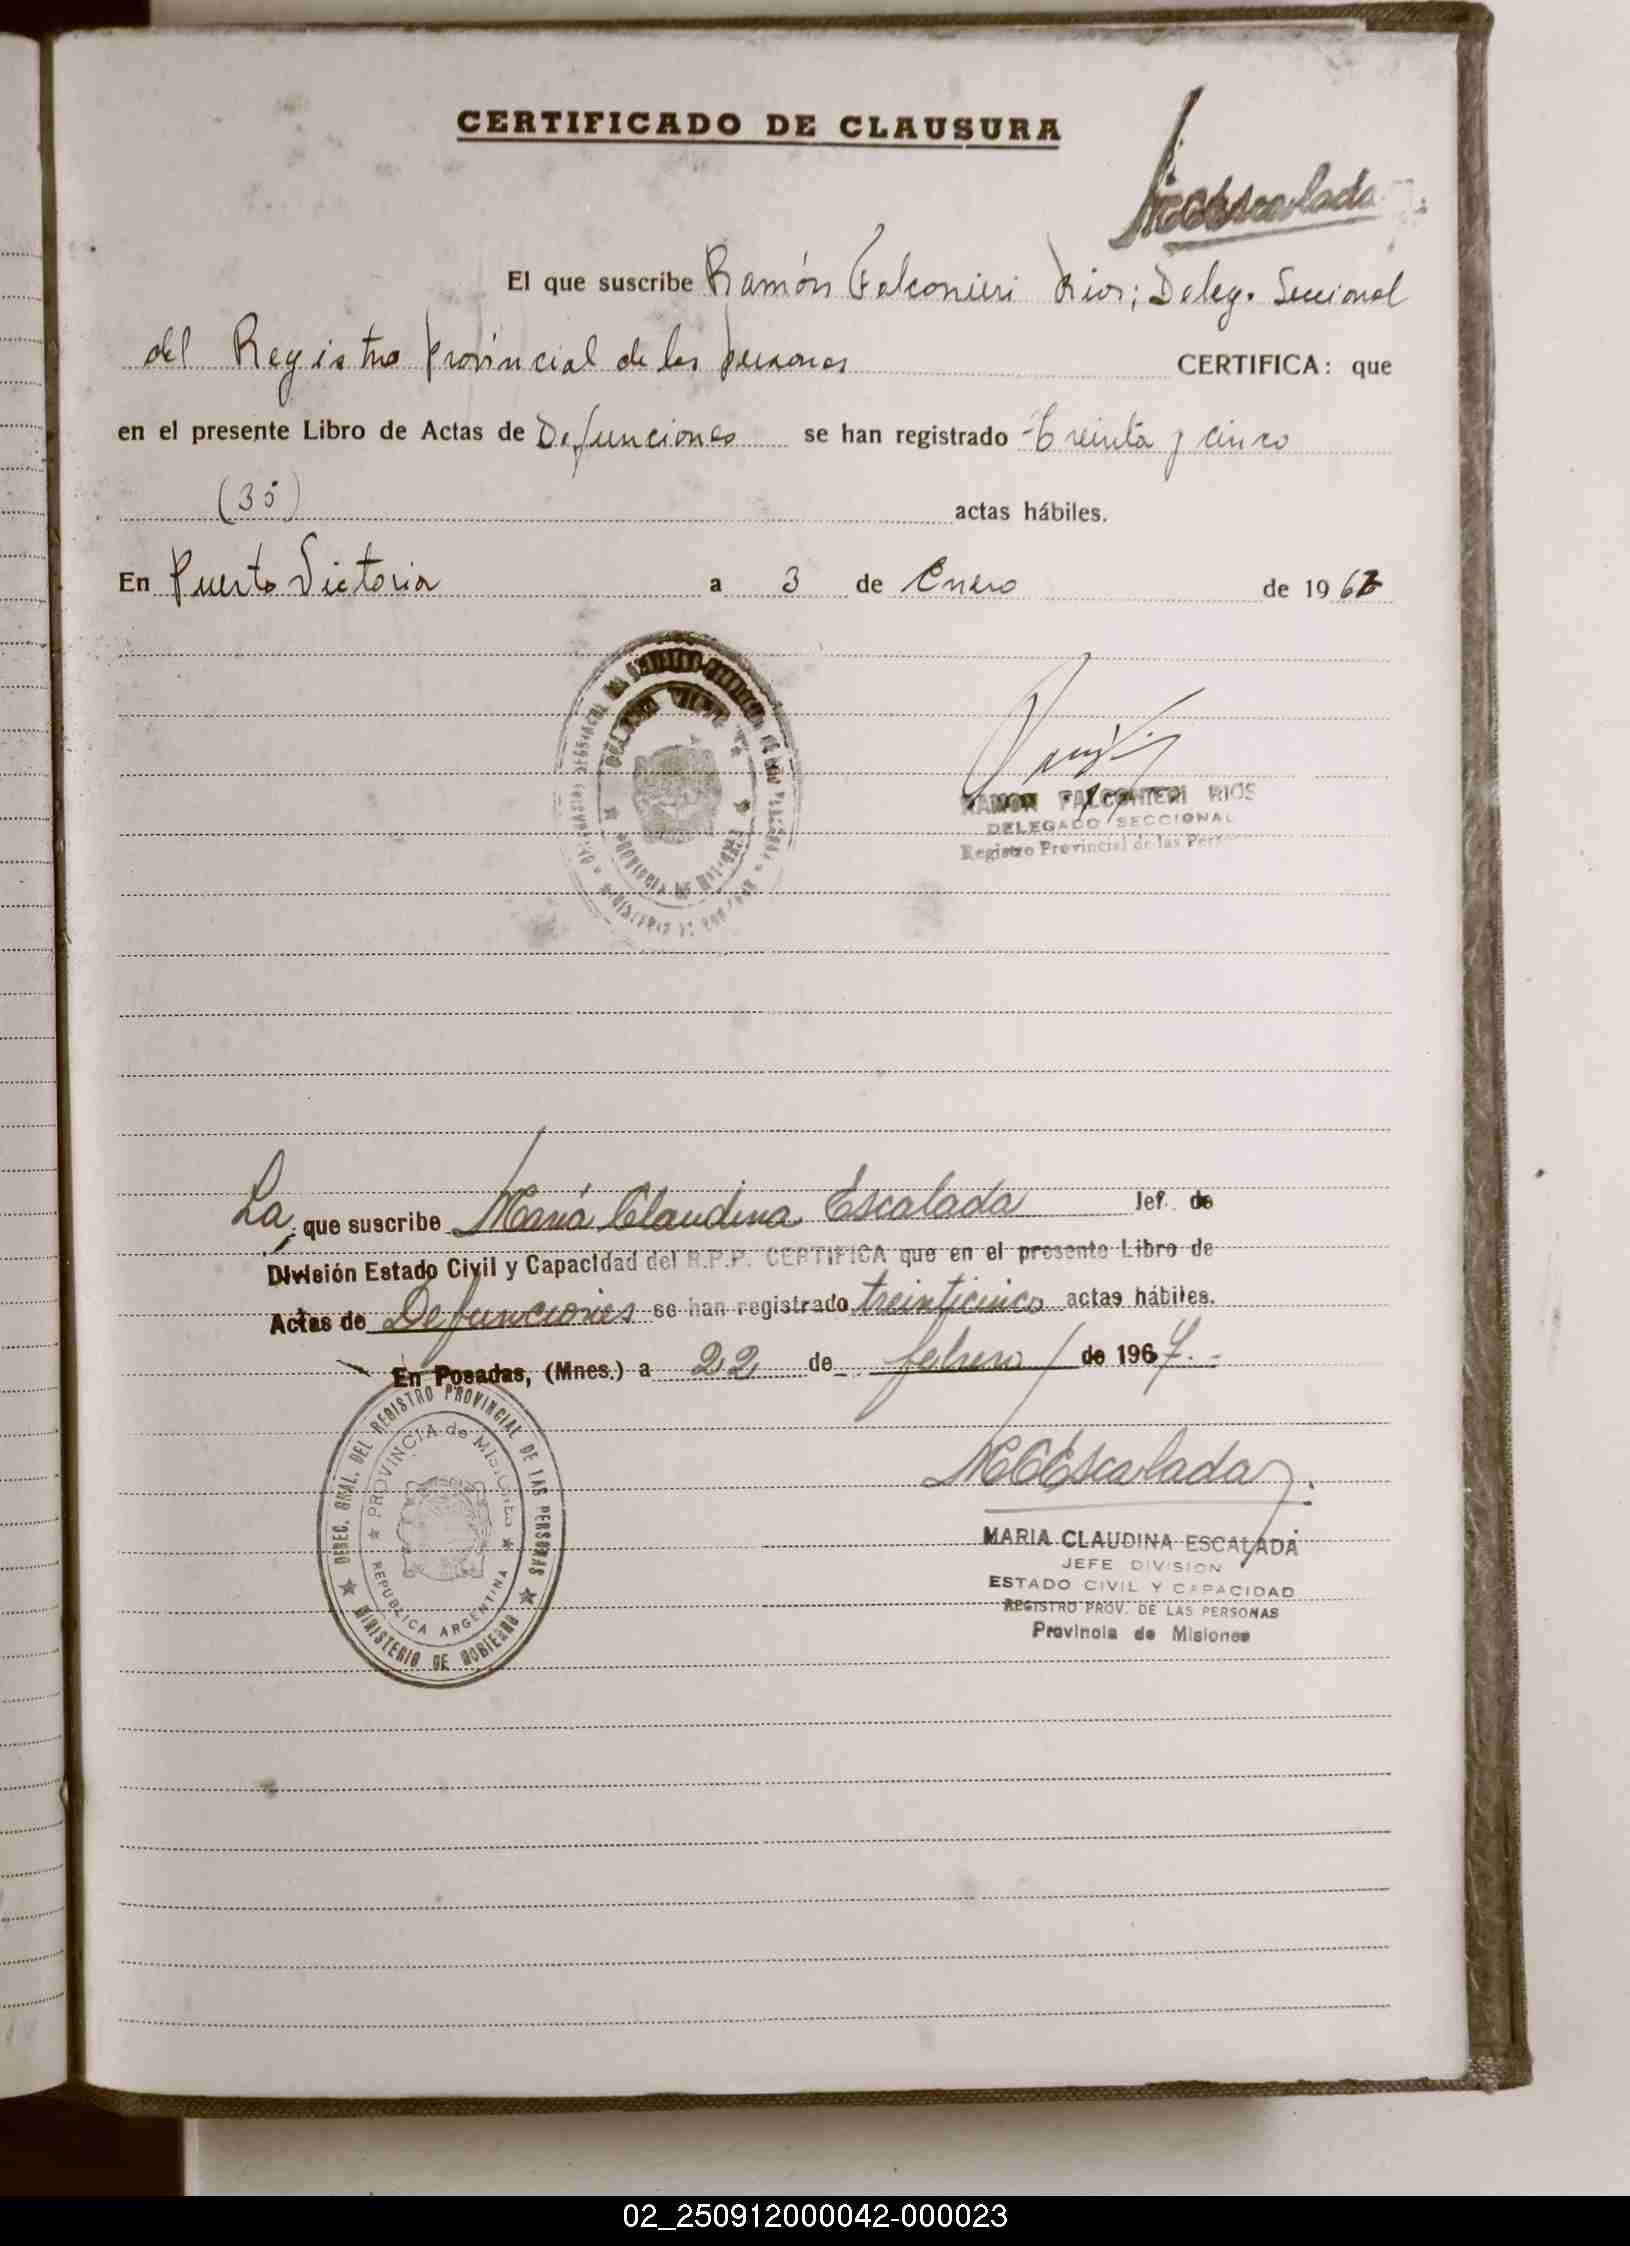 CERTIFICADO DE CLAUSURA
MCEscalada
El que suscribe Ramón Falconieri Rios; Deleg. Seccional
del Registro Provincial de las personas CERTIFICA: que
en el presente Libro de Actas de Defunciones se han registrado Treinta y cinco
(35) actas hábiles.
En Puerto Victoria a 3 de Enero de 1967
RAMON FALCONIERI RIOS
DELEGADO SECCIONAL
Registro Provincial de las Per
PROVINCIA DE MISIONES
La que suscribe María Claudina Escalada Jef. de
División Estado Civil y Capacidad del R.P.P. CERTIFICA que en el presente Libro de
Actas de Defunciones se han registrado treinticinco actas hábiles.
En Posadas, (Mnes.) a 22 de febrero de 1967.-
DIREC. GRAL. DEL REGISTRO PROVINCIAL DE LAS PERSONAS
MINISTERIO DE GOBIERNO
PROVINCIA de MISIONES
REPUBLICA ARGENTINA
MCEscalada
MARIA CLAUDINA ESCALADA
JEFE DIVISION
ESTADO CIVIL Y CAPACIDAD
REGISTRO PROV. DE LAS PERSONAS
Provincia de Misiones
02_250912000042-000023